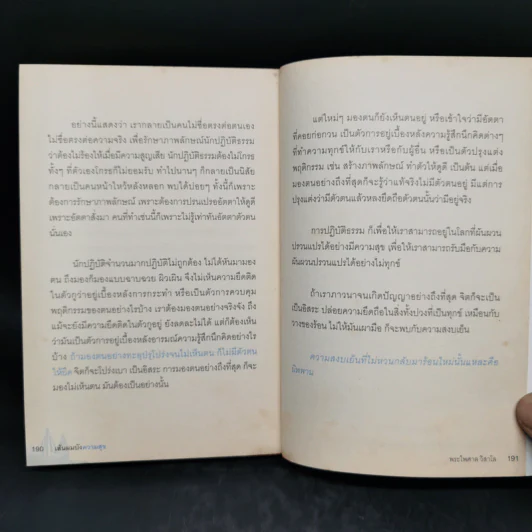 อย่างนี้แสดงว่า เรากลายเป็นคนไม่ซื่อตรงต่อตนเอง
ไม่ซื่อตรงต่อความจริง เพื่อรักษาภาพลักษณ์นักปฏิบัติธรรม
ว่าต้องไม่ร้องไห้เมื่อมีความสูญเสีย นักปฏิบัติธรรมต้องไม่โกรธ
ทั้งๆ ที่ตัวเองโกรธก็ไม่ยอมรับ ทำไปนานๆ ก็กลายเป็นนิสัย
กลายเป็นคนหน้าไหว้หลังหลอก พบได้บ่อยๆ ทั้งนี้ก็เพราะ
ต้องการรักษาภาพลักษณ์ เพราะต้องการปรนเปรออัตตาให้ดูดี
เพราะอัตตาสั่งมา คนที่ทำเช่นนี้ก็เพราะไม่รู้เท่าทันอัตตาตัวตน
นั่นเอง
นักปฏิบัติจำนวนมากปฏิบัติไม่ถูกต้อง ไม่ได้หันมามอง
ตน ถึงมองก็มองแบบฉาบฉวย ผิวเผิน จึงไม่เห็นความยึดติด
ในตัวกูว่าอยู่เบื้องหลังการกระทำ หรือเป็นตัวการควบคุม
พฤติกรรมของตนอย่างไรบ้าง เราต้องมองตนอย่างจริงจัง ถึง
แม้จะยังมีความยึดติดในตัวกูอยู่ ยังละไม่ได้ แต่ก็ต้องเห็น
ว่ามันเป็นตัวการอยู่เบื้องหลังอารมณ์ความรู้สึกนึกคิดอย่างไร
บ้าง ถ้ามองตนอย่างทะลุปรุโปร่งจนไม่เห็นตน ก็ไม่มีตัวตน
ให้ยึด จิตก็จะโปร่งเบา เป็นอิสระ การมองตนอย่างถึงที่สุด ก็จะ
มองไม่เห็นตน มันต้องเป็นอย่างนั้น
190 เติมลมบัวความสุข
แต่ใหม่ๆ มองตนก็ยังเห็นตนอยู่ หรือเข้าใจว่ามีอัตตา
ที่คอยก่อกวน เป็นตัวการอยู่เบื้องหลังความรู้สึกนึกคิดต่างๆ
ที่ทำความทุกข์ให้กับเราหรือกับผู้อื่น หรือเป็นตัวปรุงแต่ง
พฤติกรรม เช่น สร้างภาพลักษณ์ ทำตัวให้ดูดี เป็นต้น แต่เมื่อ
มองตนอย่างถึงที่สุดก็จะรู้ว่าแท้จริงไม่มีตัวตนอยู่ มีแต่การ
ปรุงแต่งว่ามีตัวตนแล้วหลงยึดถือตัวตนนั้นว่ามีอยู่จริง
การปฏิบัติธรรม ก็เพื่อให้เราสามารถอยู่ในโลกที่ผันผวน
ปรวนแปรได้อย่างมีความสุข เพื่อให้เราสามารถรับมือกับความ
ผันผวนปรวนแปรได้อย่างไม่ทุกข์
ถ้าเราภาวนาจนเกิดปัญญาอย่างถึงที่สุด จิตก็จะเป็น
เป็นอิสระ ปล่อยวางความยึดถือในสิ่งทั้งปวงที่เป็นทุกข์ เหมือนกับ
วางของร้อน ไม่ให้มันเผามือ ก็จะพบกับความสงบเย็น
ความสงบเย็นที่ไม่หวนกลับมาร้อนใหม่นั่นแหละคือ
นิพพาน
พระไพศาล วิสาโล 191